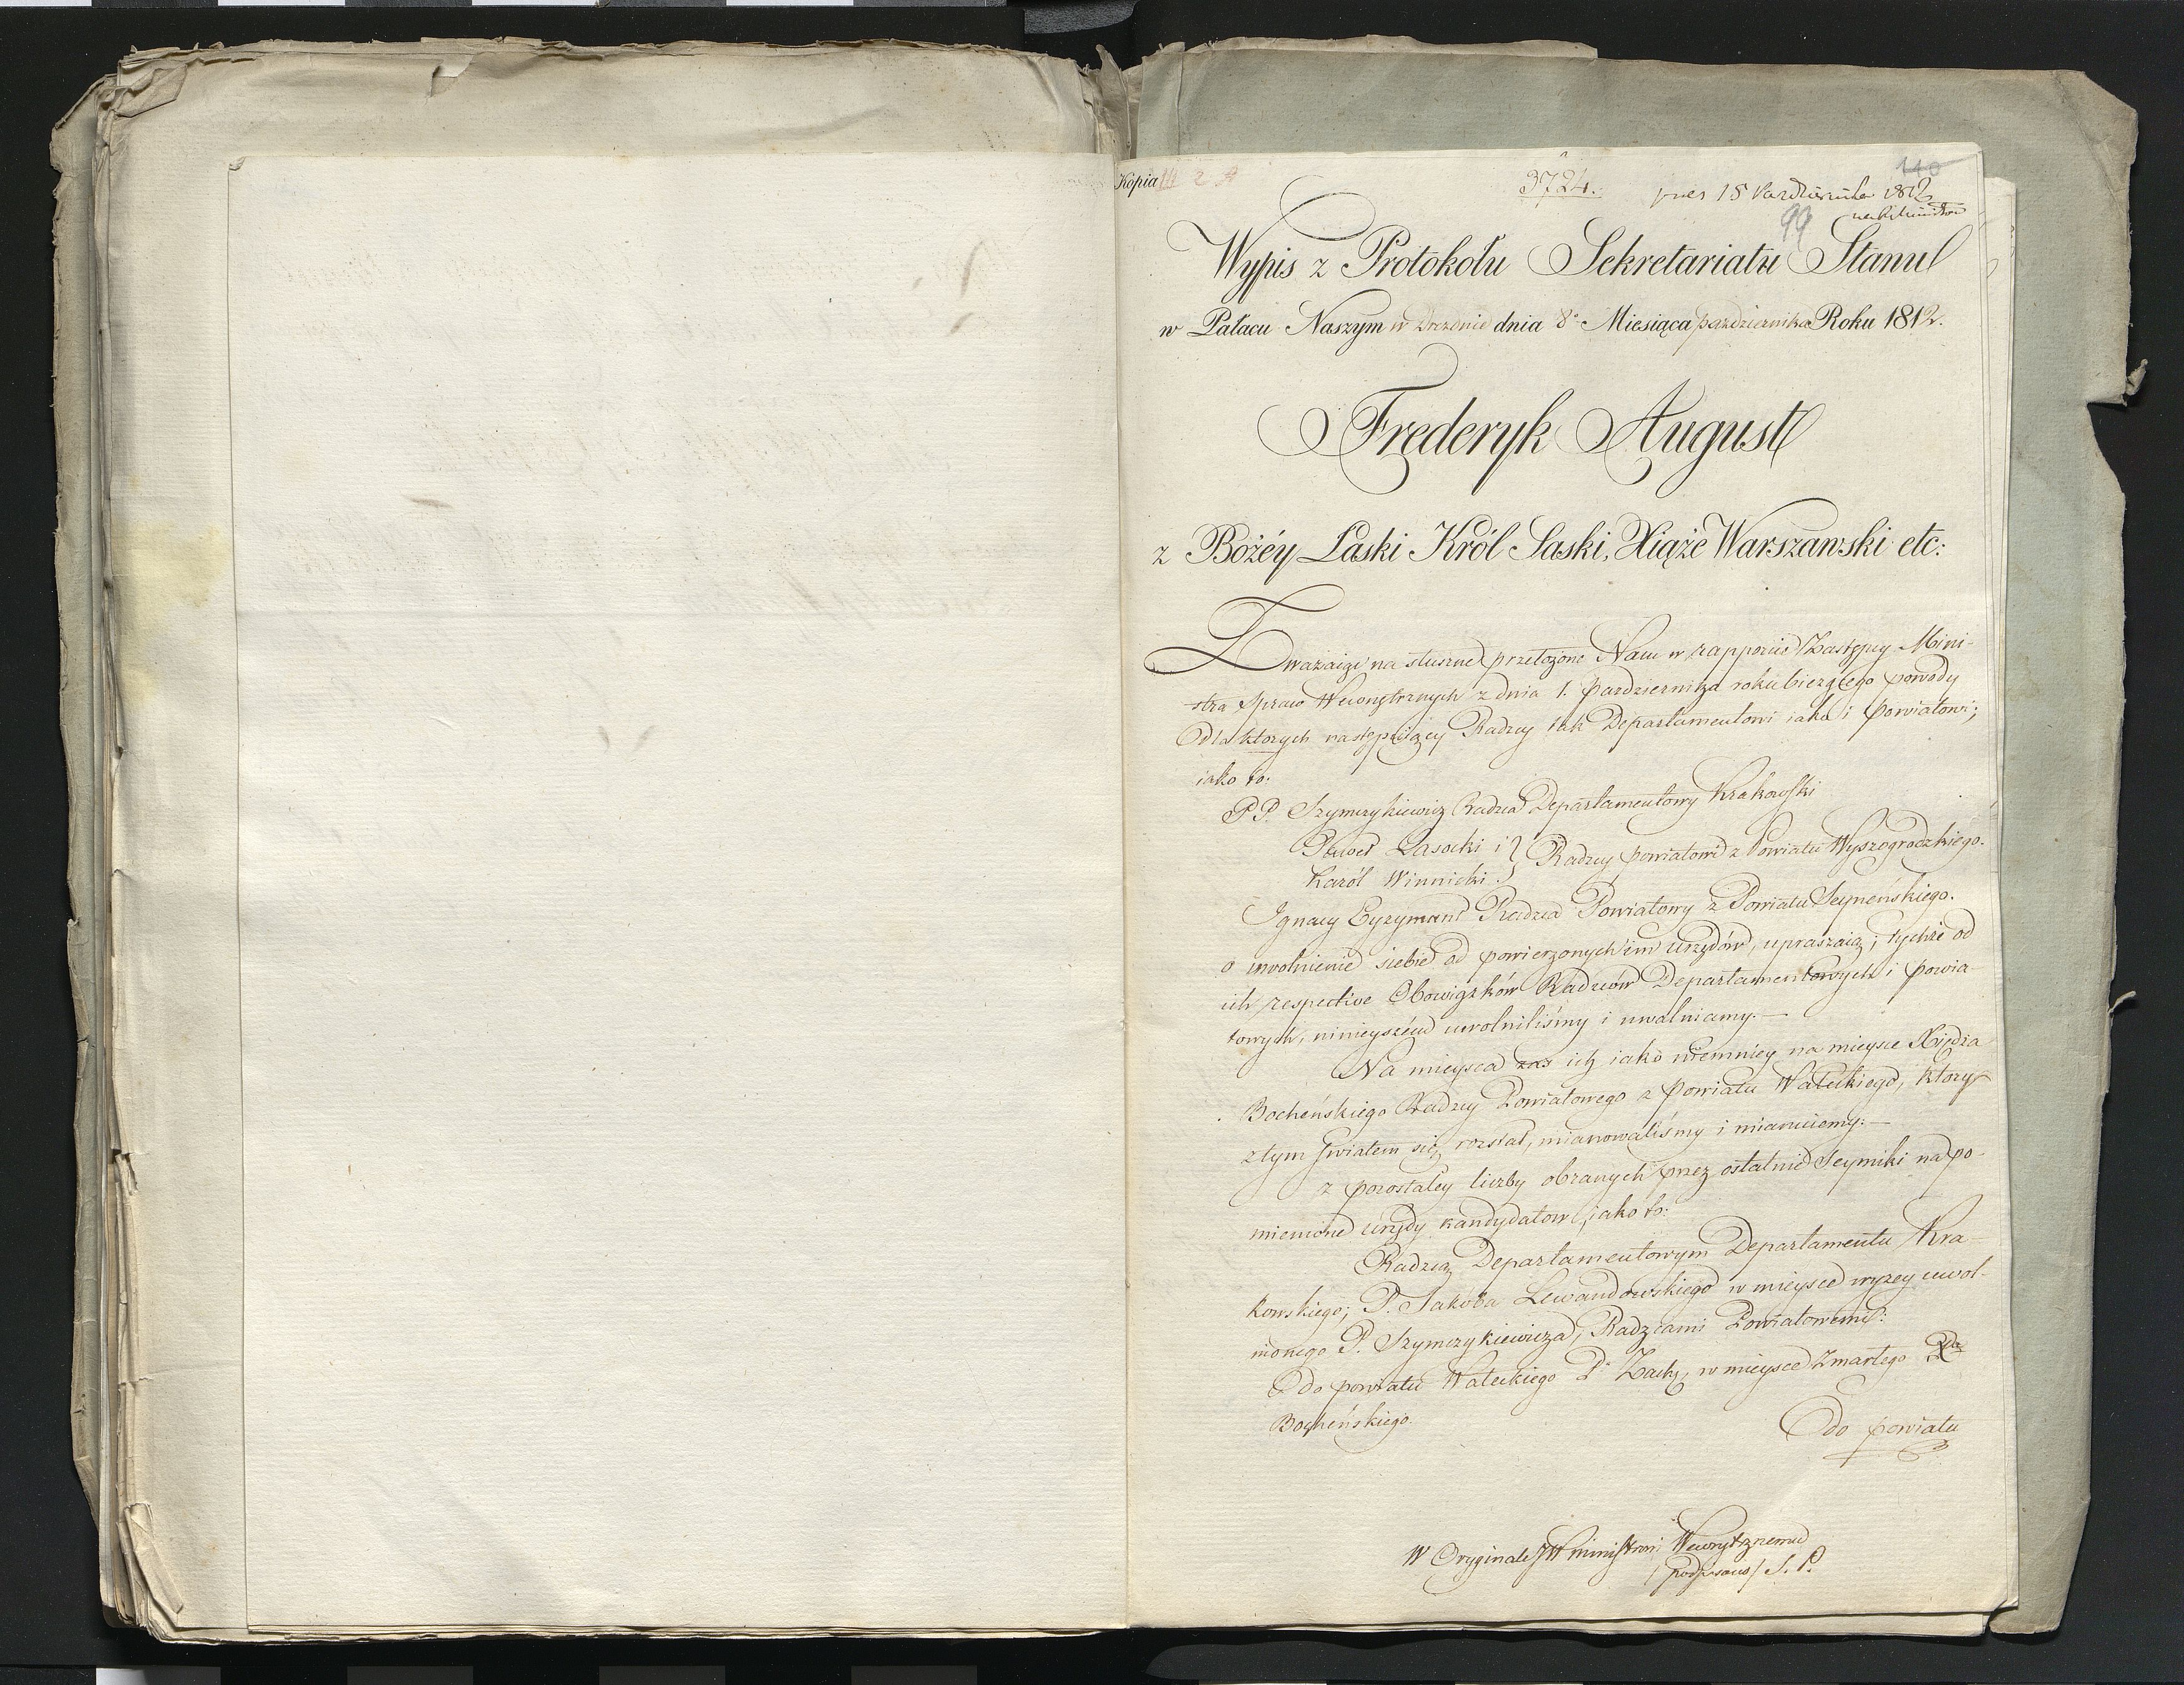 Kopia III 2 A
3724. pres 15 Października 1812
110
99
Wypis z Protokołu Sekretariatu Stanu
w Pałacu Naszym w Dreźnie dnia 8o Miesiąca października Roku 1812.
Frederyk August
z Bożéy Łaski Król Saski, Xiąże Warszawski etc:
Zważaiąc na słuszne przełożone Nam w rapporcie Zastępcy Mini-
stra Spraw Wewnętrznych z dnia 1. października roku bieżącego powody
Dla ktorych następuiący Radzcy tak Departamentowi iako i powiatowi;
iako to:
PP. Szymczykiewicz Radzca Departamentowy Krakowski
Paweł Lasocki i
Karól Winnicki. } Radzcy powiatowi z Powiatu Wyszogrodzkiego.
Ignacy Eyzymont Radzca Powiatowy z Powiatu Seyneńskiego.
o uwolnienie siebie od powierzonych im urzędów, upraszaią; tychże od
ich respective Obowiązków Radzców Departamentowych i powia-
towych, ninieyszém uwolniliśmy i uwalniamy.—
Na mieysca zas ich iako niemniey na mieysce Xiędza
Bocheńskiego Radzcy Powiatowego z powiatu Wałeckiego, ktory
z tym światem się rozstał, mianowaliśmy i mianuiemy:—
z pozostałey liczby obranych przez ostatnie Seymiki na po-
mienione urzędy kandydatow, iako to:
Radzcą Departamentowym Departamentu Kra-
kowskiego; P. Jakoba Lewandowskiego w mieysce wyzey uwol-
nionego P. Szymczykiewicza, Radzcami Powiatowemi:
do powiatu Wałeckiego P. Zachę, w mieysce Zmarłego Xdza
Bocheńskiego.
do powiatu
W Oryginale JW Ministrowi Wewnętrznemu
/podpisano/ S. P.